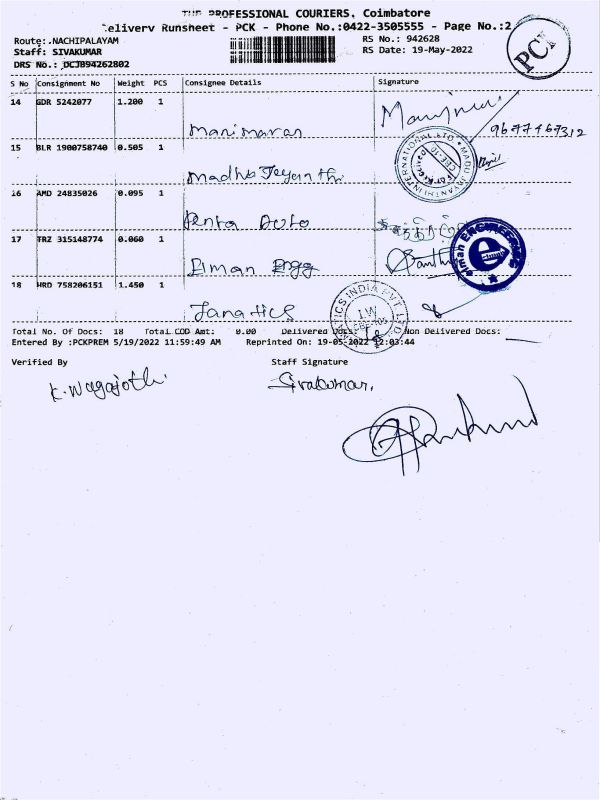 THE PROFESSIONAL COURIERS, Coimbatore
Delivery Runsheet - PCK - Phone No.:0422-3505555 - Page No.:2
Route:.NACHIPALAYAM
RS No.: 942628
Staff: SIVAKUMAR
RS Date: 19-May-2022
DRS No.: DCJB94262802
PCK
S No Consignment No Weight PCS Consignee Details Signature
14 GDR 5242077 1.200 1
Manimaran
9677467312
15 BLR 1900758740 0.505 1
Madhu Jeyanthi
16 AMD 24835026 0.095 1
Penta Auto
17 TRZ 315148774 0.060 1
Elman Engg
18 HRD 758206151 1.450 1
Janatics
Total No. Of Docs: 18 Total COD Amt: 0.00 Delivered Docs: 18 Non Delivered Docs:
Entered By :PCKPREM 5/19/2022 11:59:49 AM Reprinted On: 19-05-2022 12:03:44
Verified By Staff Signature
K. Nagajothi Sivakumar.